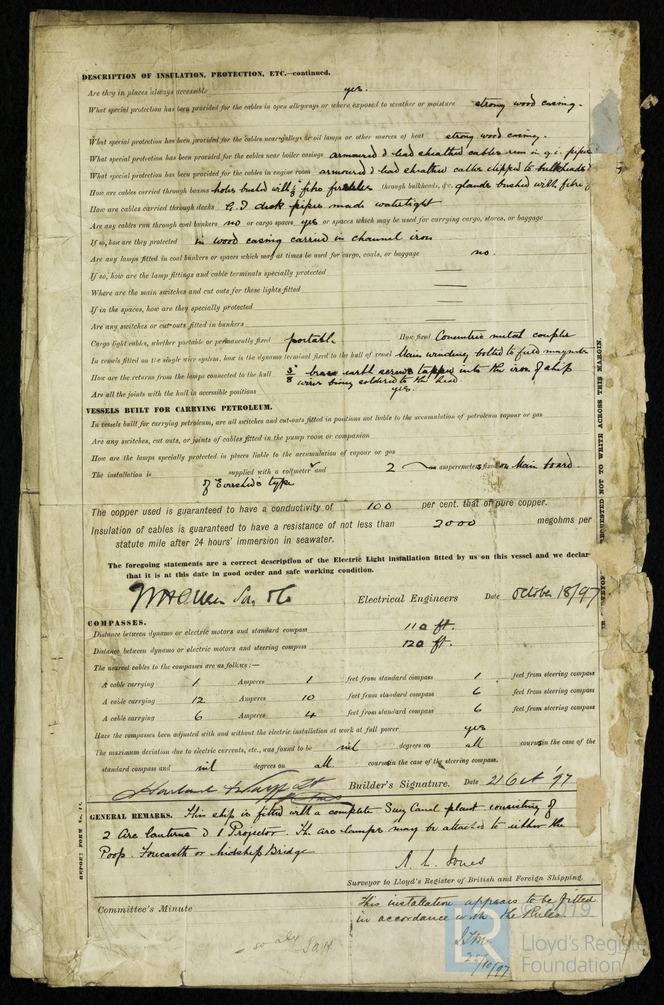 DESCRIPTION OF INSULATION, PROTECTION, ETC.—continued.
Are they in places always accessible yes.
What special protection has been provided for the cables in open alleyways or where exposed to weather or moisture strong wood casing.
What special protection has been provided for the cables near galleys or oil lamps or other sources of heat strong wood casing.
What special protection has been provided for the cables near boiler casings armoured & lead sheathed cables run in g.i. pipes
What special protection has been provided for the cables in engine room armoured & lead sheathed cables clipped to bulkheads &
How are cables carried through beams holes bushed with fibre ferrules through bulkheads, &c. glands bushed with fibre
How are cables carried through decks G.I. deck pipes made watertight
Are any cables run through coal bunkers no or cargo spaces yes or spaces which may be used for carrying cargo, stores, or baggage
If so, how are they protected in wood casing carried in channel iron
Are any lamps fitted in coal bunkers or spaces which may at times be used for cargo, coals, or baggage no.
If so, how are the lamp fittings and cable terminals specially protected —
Where are the main switches and cut outs for these lights fitted —
If in the spaces, how are they specially protected —
Are any switches or cut-outs fitted in bunkers —
Cargo light cables, whether portable or permanently fixed portable How fixed Concentric metal coupler
In vessels fitted on the single wire system, how is the dynamo terminal fixed to the hull of vessel Main winding bolted to field magnets
How are the returns from the lamps connected to the hull 3/8" brass earth screws tapped into the iron of ship
wires being soldered to the head
Are all the joints with the hull in accessible positions yes.
VESSELS BUILT FOR CARRYING PETROLEUM.
In vessels built for carrying petroleum, are all switches and cut-outs fitted in positions not liable to the accumulation of petroleum vapour or gas
Are any switches, cut outs, or joints of cables fitted in the pump room or companion
How are the lamps specially protected in places liable to the accumulation of vapour or gas
The installation is supplied with a voltmeter and 2 an amperemeters fixed on Main board.
of Evershed's type
The copper used is guaranteed to have a conductivity of 100 per cent. that of pure copper.
Insulation of cables is guaranteed to have a resistance of not less than 2000 megohms per
statute mile after 24 hours' immersion in seawater.
The foregoing statements are a correct description of the Electric Light installation fitted by us on this vessel and we declar
that it is at this date in good order and safe working condition.
W H Allen Son & Co Electrical Engineers Date October 18/97
COMPASSES.
Distance between dynamo or electric motors and standard compass 110 ft.
Distance between dynamo or electric motors and steering compass 120 ft.
The nearest cables to the compasses are as follows:—
A cable carrying 1 Amperes 1 feet from standard compass 1 feet from steering compass
A cable carrying 12 Amperes 10 feet from standard compass 6 feet from steering compass
A cable carrying 6 Amperes 4 feet from standard compass 6 feet from steering compass
Have the compasses been adjusted with and without the electric installation at work at full power yes
The maximum deviation due to electric currents, etc., was found to be nil degrees on all courses in the case of the
standard compass and nil degrees on all courses in the case of the steering compass.
Builder's Signature. Date 21 Oct '97
GENERAL REMARKS. This ship is fitted with a complete Suez Canal plant consisting of
2 Arc Lanterns & 1 Projector. The arc lamps may be attached to either the
Poop. Forecastle or Midship Bridge
A. L. Jones
Surveyor to Lloyd's Register of British and Foreign Shipping.
Committee's Minute
This installation appears to be fitted
in accordance with the Rules.
REPORT FORM No.
REQUESTED NOT TO WRITE ACROSS THIS MARGIN.
© 2019
LR
Lloyd's Register
Foundation